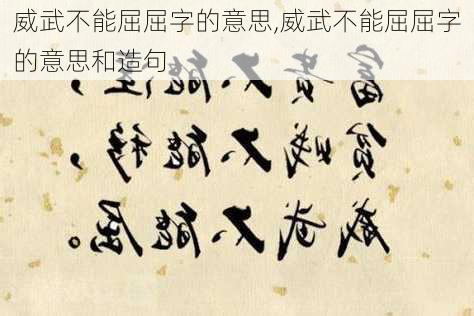 威武不能屈屈字的意思,威武不能屈屈字
的意思和造句
富贵不能淫，
贫贱不能移，
威武不能屈。